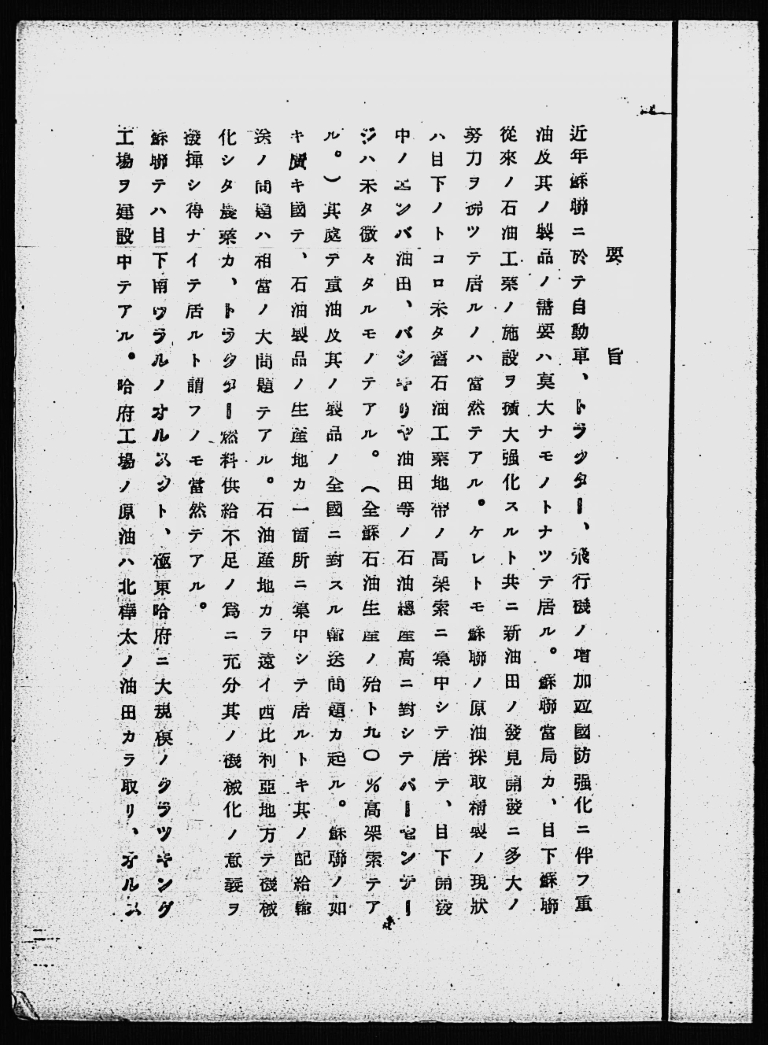 要旨
近年蘇聯ニ於テ自動車、トラクター、飛行機ノ增加竝國防强化ニ伴フ重
油及其ノ製品ノ需要ハ莫大ナモノトナツテ居ル。蘇聯當局カ、目下蘇聯
從來ノ石油工業ノ施設ヲ擴大强化スルト共ニ新油田ノ發見開發ニ多大ノ
努力ヲ拂ツテ居ルノハ當然テアル。ケレトモ蘇聯ノ原油採取精製ノ現狀
ハ目下ノトコロ未タ舊石油工業地帶ノ高架索ニ集中シテ居テ、目下開發
中ノエンバ油田、バシキリヤ油田等ノ石油總產高ニ對シテパーセンテー
ジハ未タ微々タルモノテアル。(全蘇石油生產ノ殆ト九〇%高架索テア
ル。)其處テ重油及其ノ製品ノ全國ニ對スル輸送問題カ起ル。蘇聯ノ如
キ廣キ國テ、石油製品ノ生產地カ一箇所ニ集中シテ居ルトキ其ノ配給輸
送ノ問題ハ相當ノ大問題テアル。石油產地カラ遠イ西比利亞地方テ機械
化シタ農業カ、トラクター燃料供給不足ノ爲ニ充分其ノ機械化ノ意義ヲ
發揮シ得ナイテ居ルト謂フノモ當然テアル。
蘇聯テハ目下南ウラルノオルスクト、極東哈府ニ大規模ノクラツキング
工場ヲ建設中テアル。哈府工場ノ原油ハ北樺太ノ油田カラ取リ、オルス